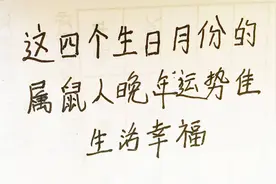 这四个生日月份的
属鼠人晚年运势佳
生活幸福